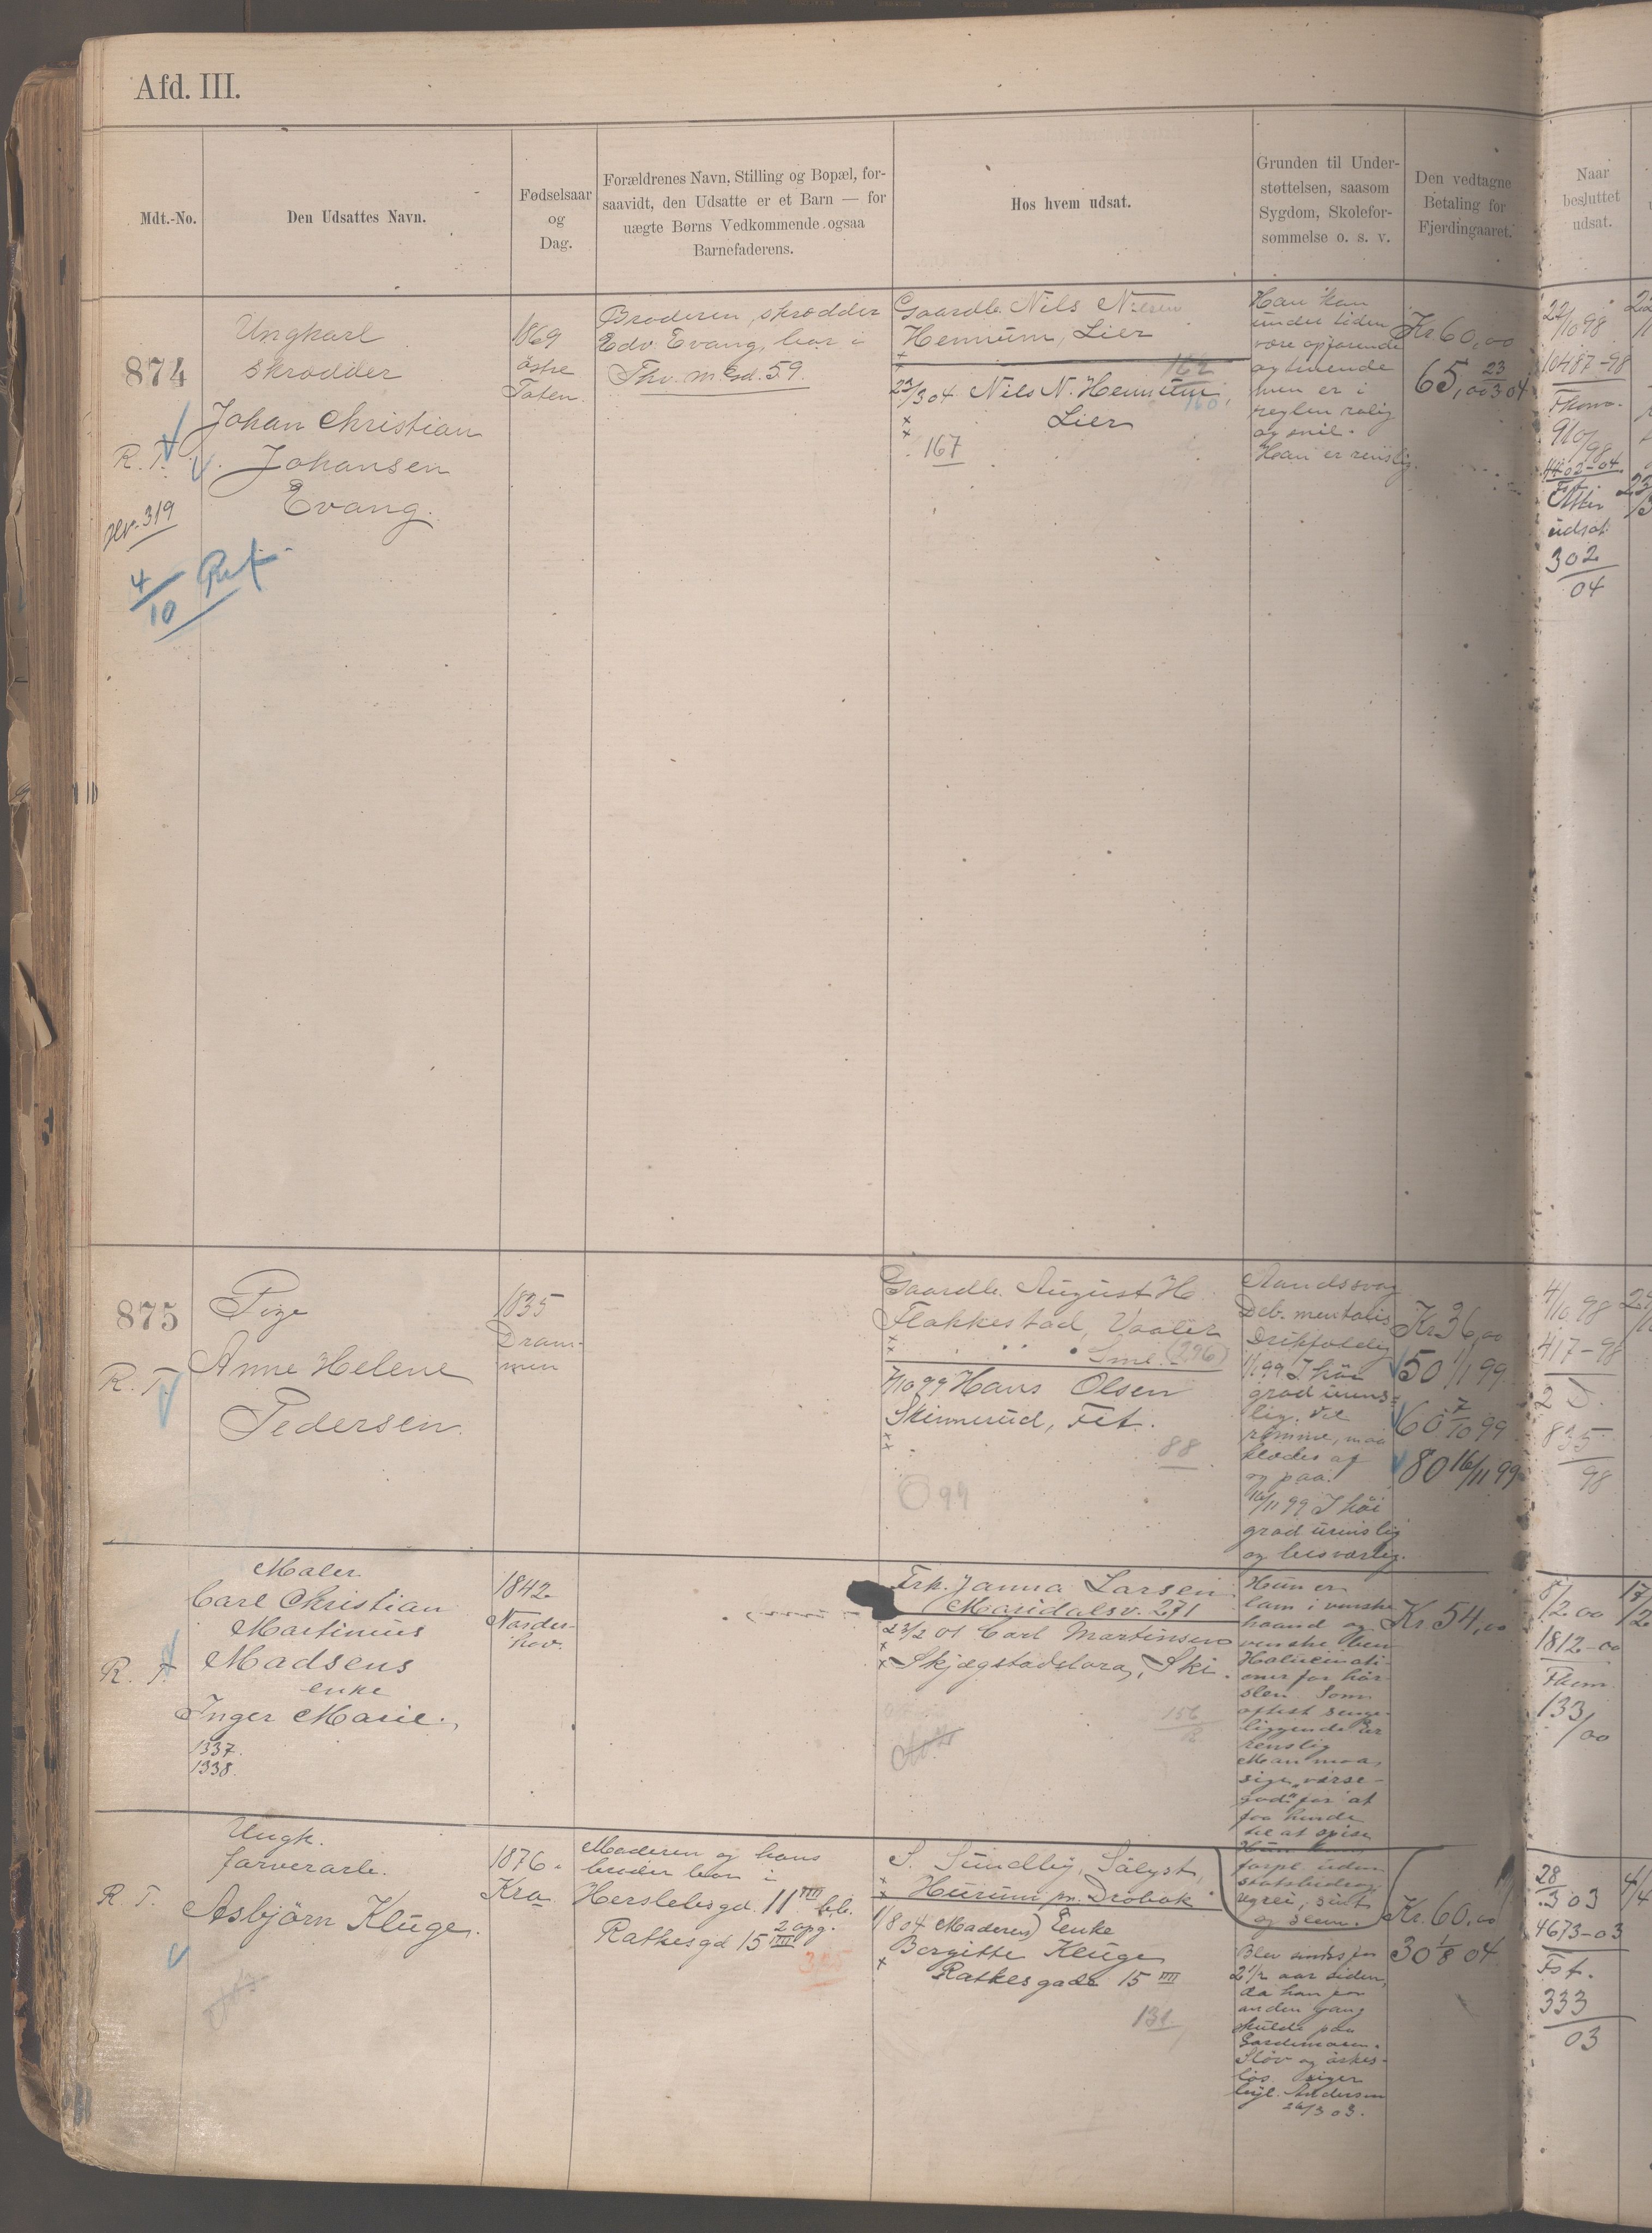 Afd. III.
Mdt.-No.
Den Udsattes Navn.
Fødselsaar
og
Dag.
Forældrenes Navn, Stilling og Bopæl, for-
saavidt, den Udsatte er et Barn — for
uægte Børns Vedkommende ogsaa
Barnefaderens.
Hos hvem udsat.
Grunden til Under-
støttelsen, saasom
Sygdom, Skolefor-
sømmelse o. s. v.
Den vedtagne
Betaling for
Fjerdingaaret.
Naar
besluttet
udsat.
874
R. T.
319
4/10
Ungkarl
skrædder
Johan Christian
Johansen
Evang.
1869
østre
Toten.
Broderen, skrædder
Edv. Evang, bor i
Thv. Meyersgd. 59.
Gaardb. Nils Nielsen
Hennum, Lier
162
23/3 04 Nils N. Hennum,
160
Lier
167
Han kan
under tiden
være opfarende
og truende
men er i
reglen rolig
og snil.
Han er renslig.
Kr 60,00
65,00 23/3 04
22/10 98
10487-98
Fhom.
910/98
4402-04
Fst.
udsat
302
04
875
R. T.
Pige
Anne Helene
Pedersen.
1835
Dram-
men
Gaardb. August H.
Flakkestad, Vaaler
Sml. (296)
7/10 99 Hans Olsen
Skinnerud, Fet.
88
99
Aandssvag
Deb. mentalis
Drikfældig
1/1 99 I høi
grad urens-
lig. Vil
rømme, maa
klædes af
og paa.
16/11 99 I høi
grad urenslig
og besværlig.
Kr 36,00
50 1/1 99
60 7/10 99
80 16/11 99
4/10 98
417-98
2 D.
835
98
R. T.
Maler
Carl Christian
Martinius
Madsens
enke
Inger Marie.
1337.
1338.
1842
Norder-
hov.
Frk. Janna Larsen
Maridalsv. 271
23/2 01 Carl Martinsen
Skjægstadslora, Ski.
156
Hun er
lam i venstre
haand og
venstre ben
Halucinati-
oner for hør-
slen. Som
oftest senge-
liggende. Er
renslig
Man maa
sige "værse-
god" for at
faa hende
til at spise
Kr 54,00
8/12 00
1812-00
Fhom.
133
/00
R. T.
Ungk.
farverarb.
Asbjörn Kluge.
1876.
Kra
Moderen og hans
brøder bor i
Herslebsgd. 11 IIII b.b.
Rathesgd 15 IIII 2 opg.
S. Sundby, Sølyst,
Hurum pr. Drøbak
1/8 04 (Moderen) Enke
Borgitte Kluge
Rathesgade 15 IIII
131
Hun kun
forpl. uden
statsbidrag,
ugrei, sint
og slem.
Blev sindss. for
2 1/2 aar siden,
da han for
anden gang
skulde paa
Gardemoen.
Sløv og ørkes-
løs. siger
Andersen
26/3 03.
Kr. 60,00
30 1/8 04
28/3 03
4673-03
Fst.
333
03